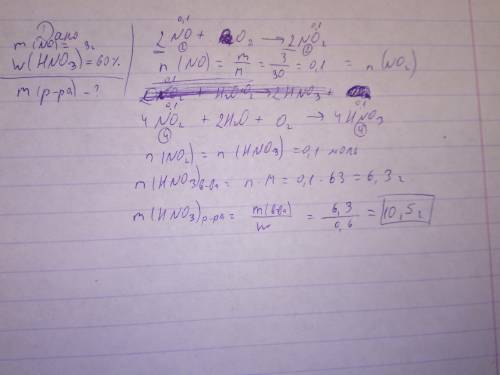 Дано
m(NO) = 3г
w(HNO3) = 60%
m(р-ра) - ?
0,1 0,1
2NO + O2 → 2NO2
n(NO) = m/n = 3/30 = 0,1 = n(NO2)
0,1 0,1
4NO2 + 2H2O + O2 → 4HNO3
n(NO2) = n(HNO3) = 0,1 моль
m(HNO3)в-ва = n·M = 0,1·63 = 6,3г
m(HNO3)р-ра = m(в-ва)/w = 6,3/0,6 = 10,5г